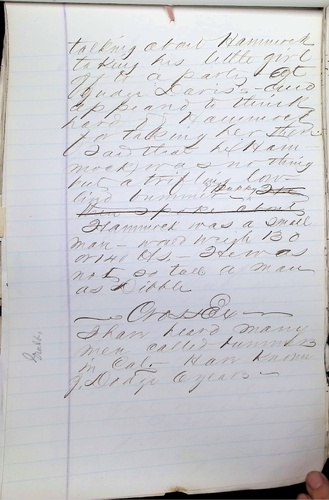 talking about Hammock
taking his little girl
off to a party at
Judge Davis - and
appeared to think
hard of Hammock
for taking her there
I said that he Ham-
mock was nothing
but a trifling low-
and bummer
Hammock was a small
man - would weigh 130
or 140 lbs. - He was
not so tall a man
as Dibble
Cross Ex
I have heard many
men called bummers
in Cal. - Have known
J. Dodge 6 years -